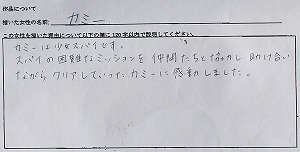 作品について
描いた女性の名前: カミー
この女性を描いた理由について以下の欄に120字以内で説明してください。
カミーは少女スパイです。
スパイの困難なミッションを仲間たちと協力し助け合い
ながらクリアしていったカミーに感動しました。